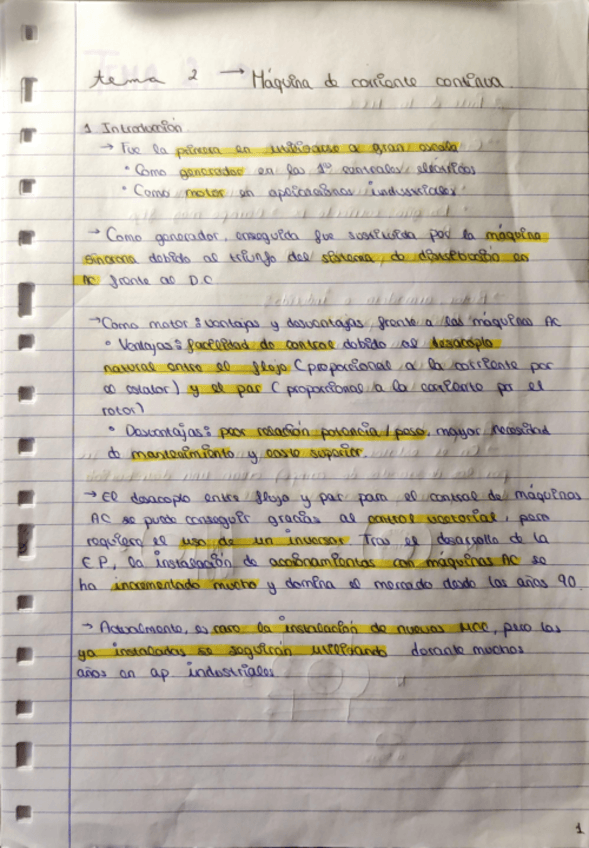 tema 2 → Máquina de corriente continua.
1 Introducción
→ Fue la primera en utilizarse a gran escala
• Como generador en las 1ª centrales eléctricas
• Como motor en aplicaciones industriales
→ Como generador, enseguida fue sustituida por la máquina
síncrona debido al triunfo del sistema de distribución en
AC frente al D.C
→ Como motor: ventajas y desventajas frente a las máquinas AC
• Ventajas: facilidad de control debido al desacoplo
natural entre el flujo (proporcional a la corriente por
el estator) y el par (proporcional a la corriente por el
rotor)
• Desventajas: peor relación potencia/peso, mayor necesidad
de mantenimiento y coste superior.
→ El desacoplo entre flujo y par para el control de máquinas
AC se puede conseguir gracias al control vectorial, pero
requiere el uso de un inversor Tras el desarrollo de la
EP, la instalación de accionamientos con máquinas AC se
ha incrementado mucho y domina el mercado desde los años 90.
→ Actualmente, es raro la instalación de nuevas MCC, pero las
ya instaladas se seguirán utilizando durante muchos
años en ap. industriales
1